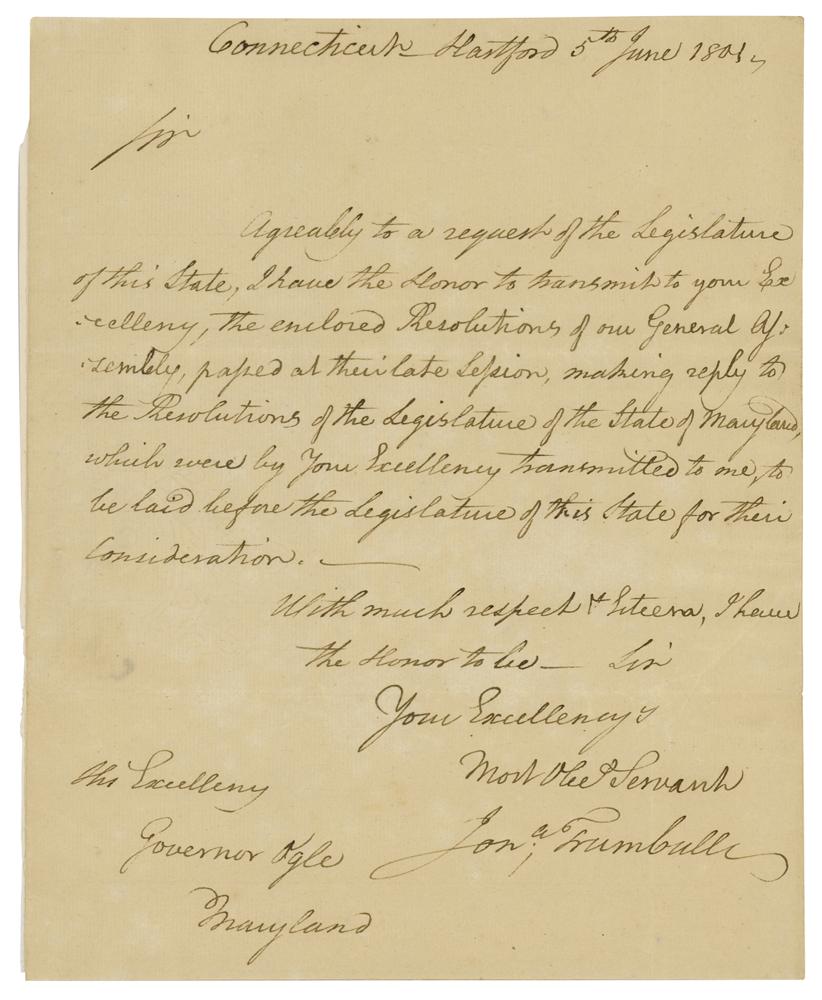 Connecticut Hartford 5th June 1801,
Sir
Agreably to a request of the Legislature
of this State, I have the Honor to transmit to your Ex
:celleny, the enclosed Resolutions of our General As:
:sembly, passed at their late Session, making reply to
the Resolutions of the Legislature of the State of Maryland,
which were by Your Excellency transmitted to me, to
be laid before the Legislature of this State for their
Consideration. —
With much respect & Esteem, I have
the Honor to be — Sir
Your Excellency's
Most Obedt Servant
Jonan; Trumbull
His Excelleny
Governor Ogle
Maryland